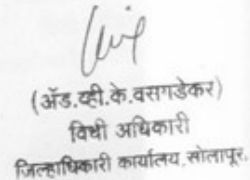 (ॲड.व्ही.के.वसगडेकर)
विधी अधिकारी
जिल्हाधिकारी कार्यालय,सोलापूर.